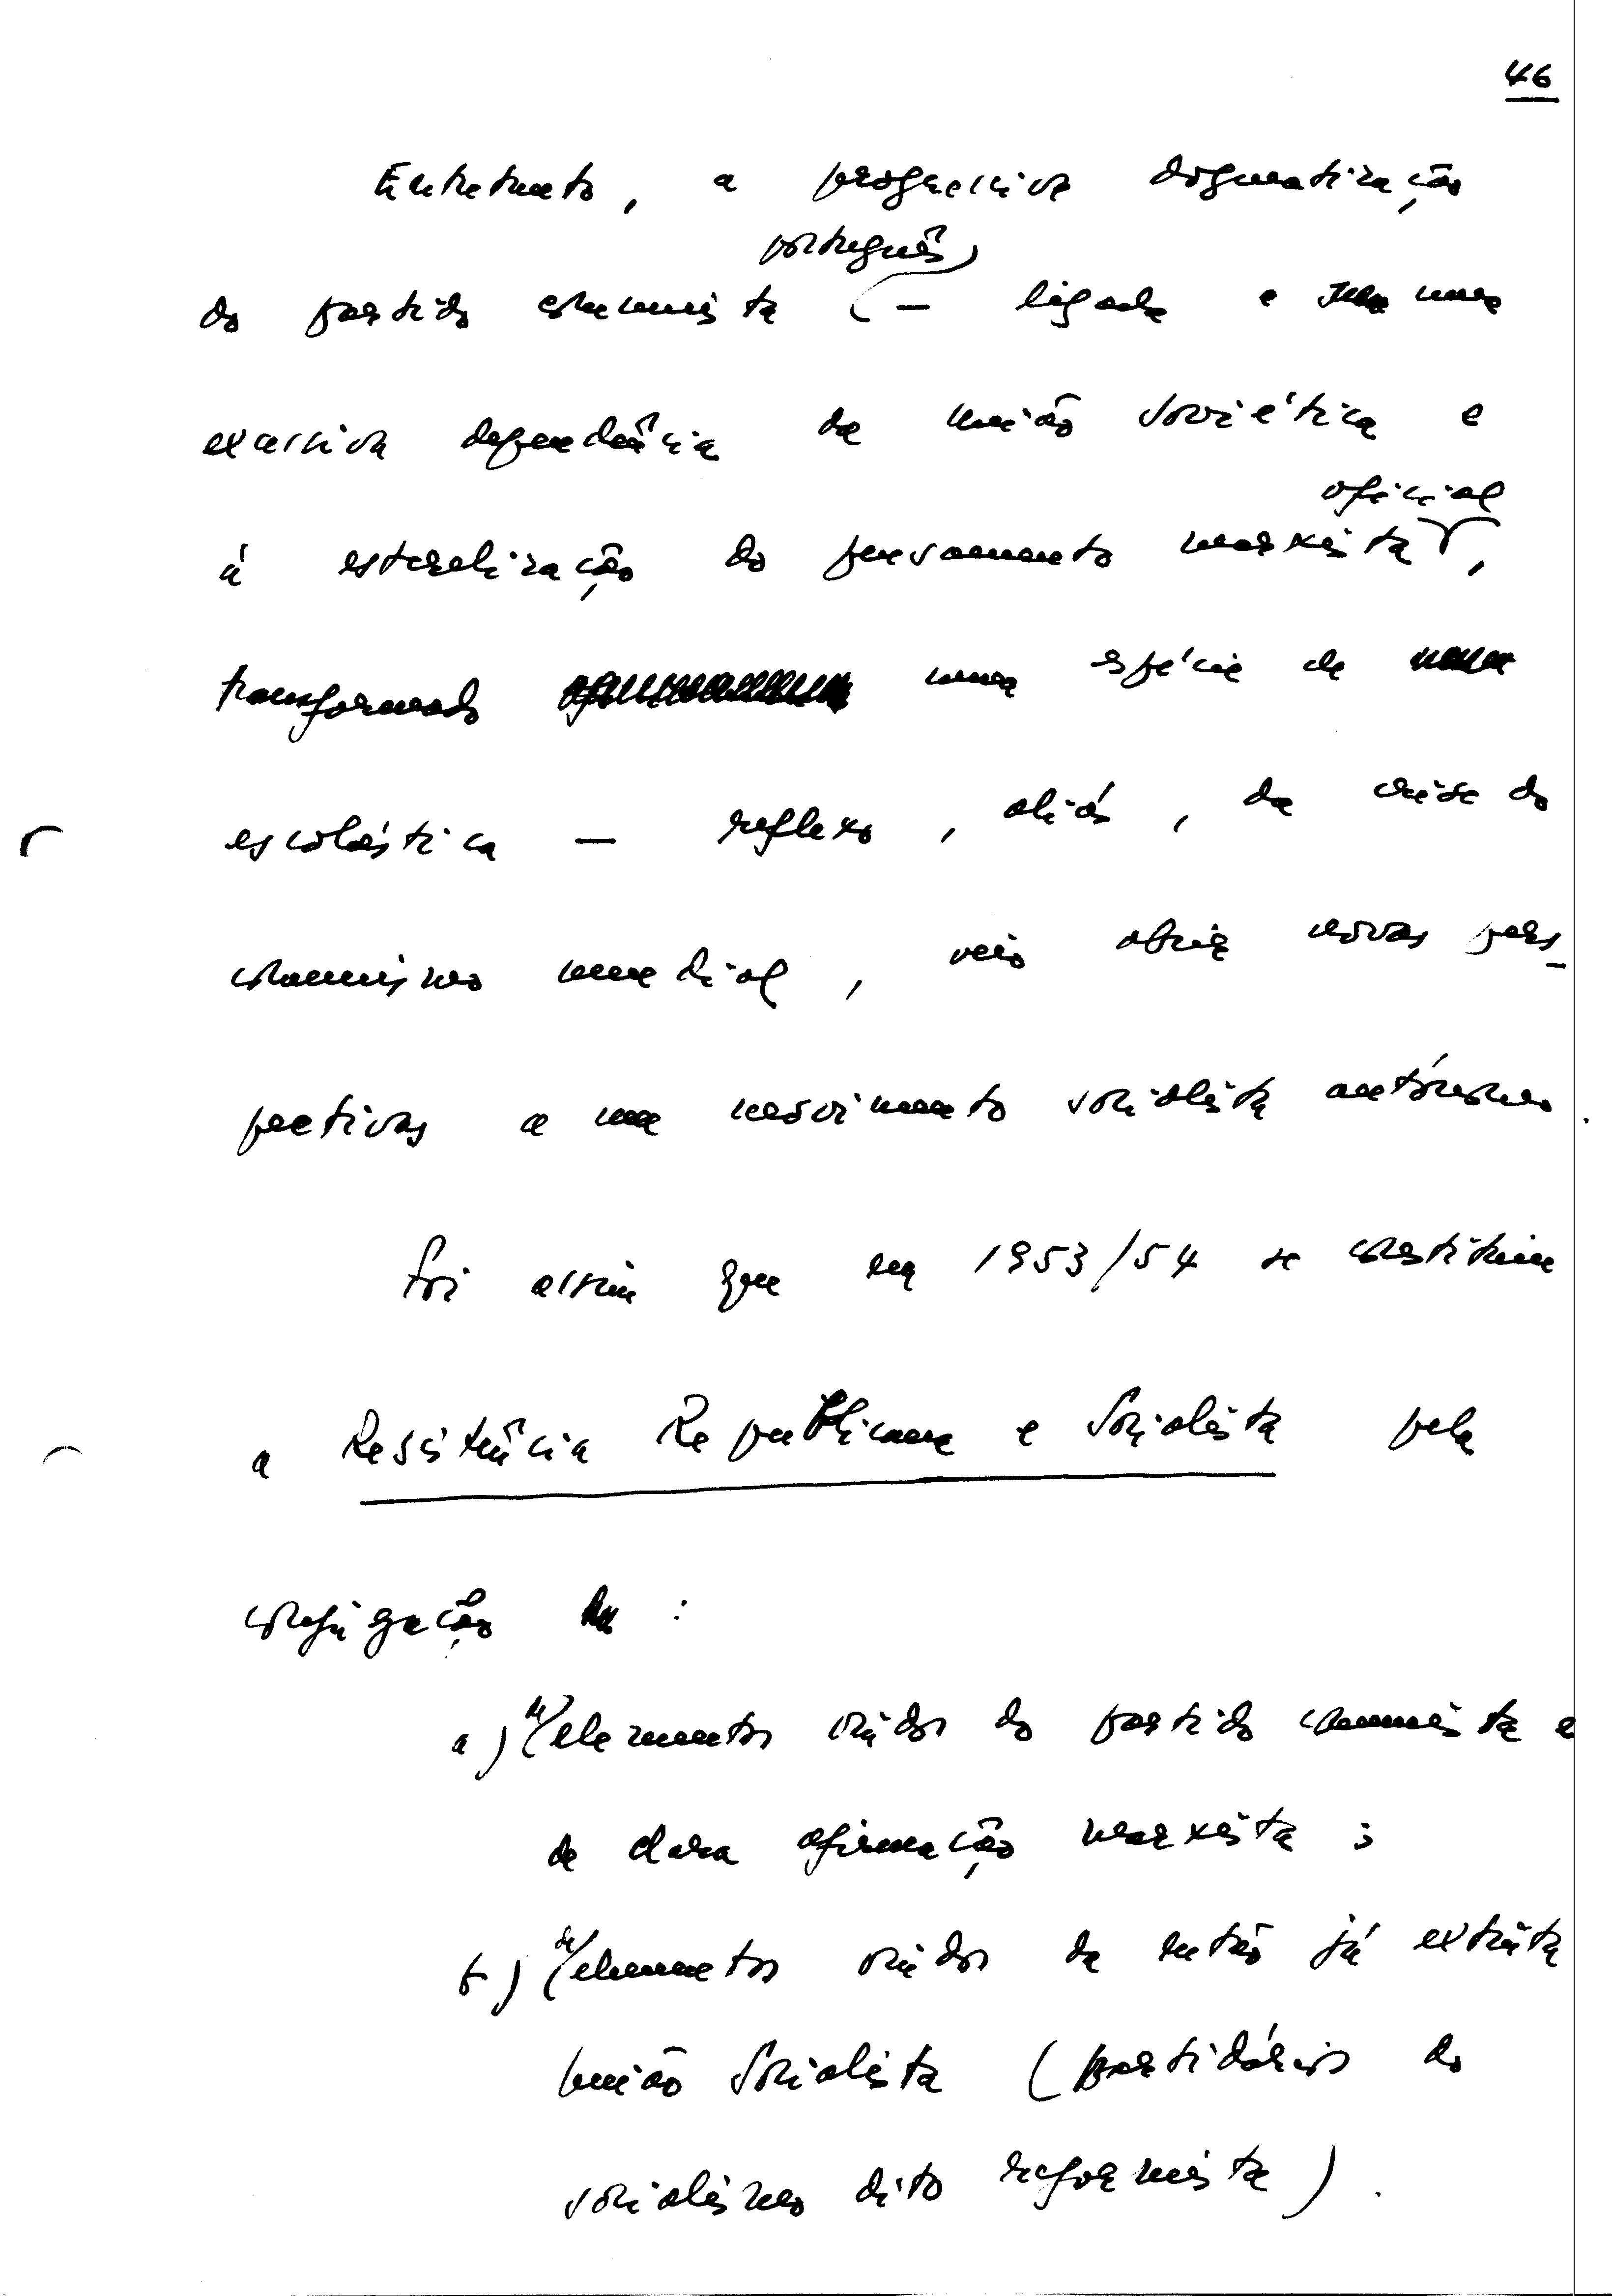 46
Entretanto, a progressiva dogmatização
português
do partido comunista — ligada a uma
excessiva dependência da União Soviética e
oficial
à esterelização do pensamento marxista,
transformado numa espécie de
escolástica — reflexo, aliás, da crise do
comunismo mundial, veio abrir novas pers-
pectivas a um movimento socialista autónomo.
Foi assim que em 1953/54 se constituiu
a Resistência Republicana e Socialista pela
conjugação :
a) de elementos vindos do partido comunista e
de clara afirmação marxista;
b) de elementos vindos da então já extinta
União Socialista (partidários do
socialismo dito reformista).